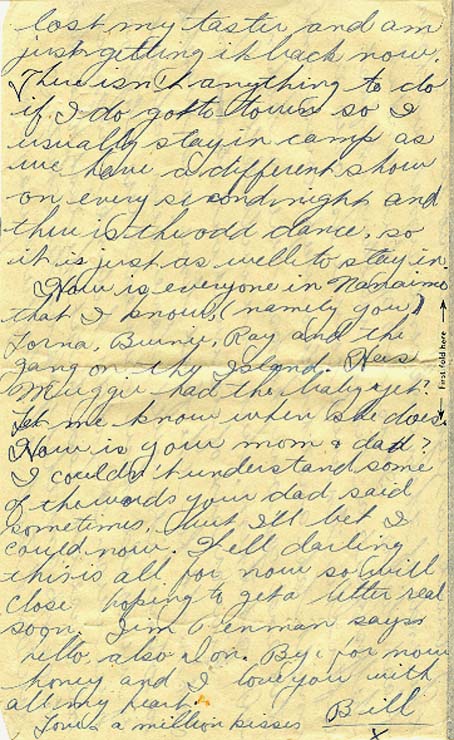 lost my taster and am
just getting it back now.
There isn't anything to do
if I do go to town so I
usually stay in camp as
we have a different show
on every second night and
there is the odd dance, so
it is just as well to stay in.
How is everyone in Nanaimo
that I know, (namely you)
Lorna, Burnie, Ray and the
gang on thy Island. Has
Muggie had the baby yet?
Let me know when she does.
How is your mom & dad?
I couldn't understand some
of the words your dad said
sometimes, but I'll bet I
could now. Well darling
this is all for now so will
close hoping to get a letter real
soon. Jim Penman says
hello, also Don. Bye for now
honey and I love you with
all my heart.
Love & a million kisses Bill
X
← First fold here →